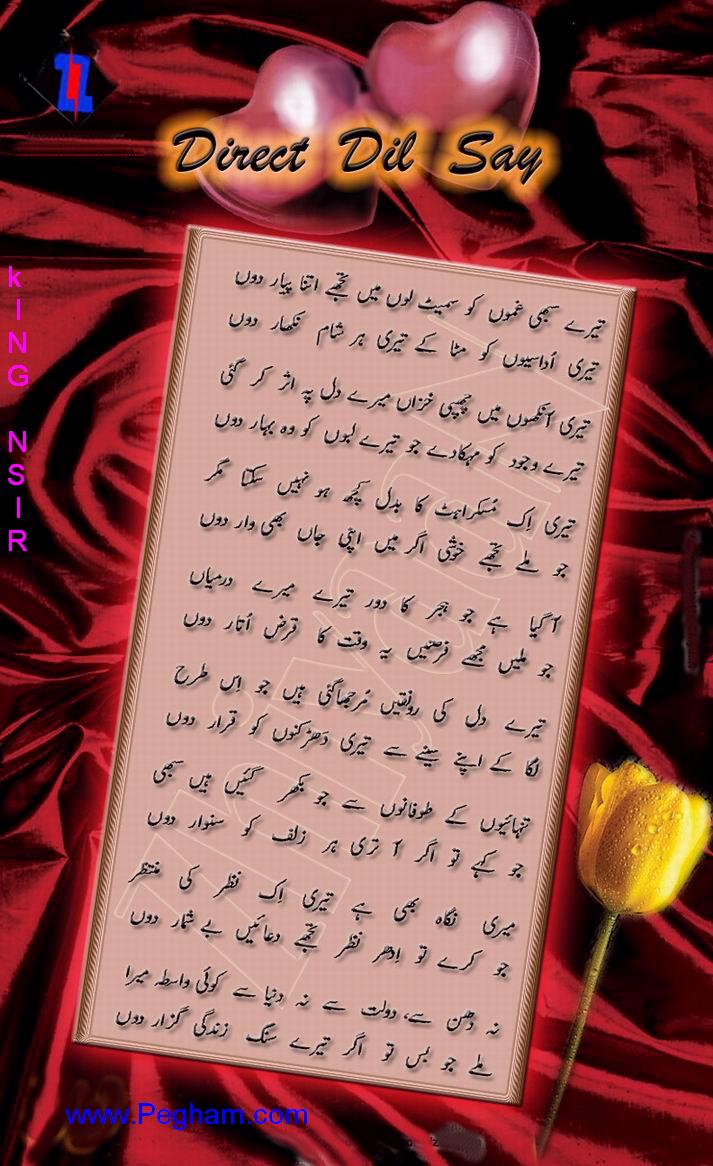 Direct Dil Say
kING NSIR
تیرے سبھی غموں کو سمیٹ لوں میں تجھے اتنا پیار دوں
تیری اُداسیوں کو مٹا کے تیری ہر شام نکھار دوں
تیری آنکھوں میں چھپی خزاں میرے دل پہ اثر کر گئی
تیرے وجود کو مہکادے جو تیرے لبوں کو وہ بہار دوں
تیری اِک مُسکراہٹ کا بدل کچھ ہو نہیں سکتا مگر
جو ملے تجھے خوشی اگر میں اپنی جاں بھی وار دوں
آگیا ہے جو ہجر کا دور تیرے میرے درمیاں
جو ملیں مجھے فرصتیں یہ وقت کا قرض اُتار دوں
تیرے دل کی رونقیں مُرجھاگئی ہیں جو اِس طرح
لگا کے اپنے سینے سے تیری دَھڑکنوں کو قرار دوں
تنہائیوں کے طوفانوں سے جو بکھر گئیں ہیں سبھی
جو کہے تو اگر آ تری ہر زلف کو سنوار دوں
میری نگاہ بھی ہے تیری اِک نظر کی منتظر
جو کرے تو اِدھر نظر تجھے دعائیں بے شمار دوں
نہ دھن سے، دولت سے نہ دنیا سے کوئی واسطہ میرا
ملے جو بس تو اگر تیرے سنگ زندگی گزار دوں
www.Pegham.com